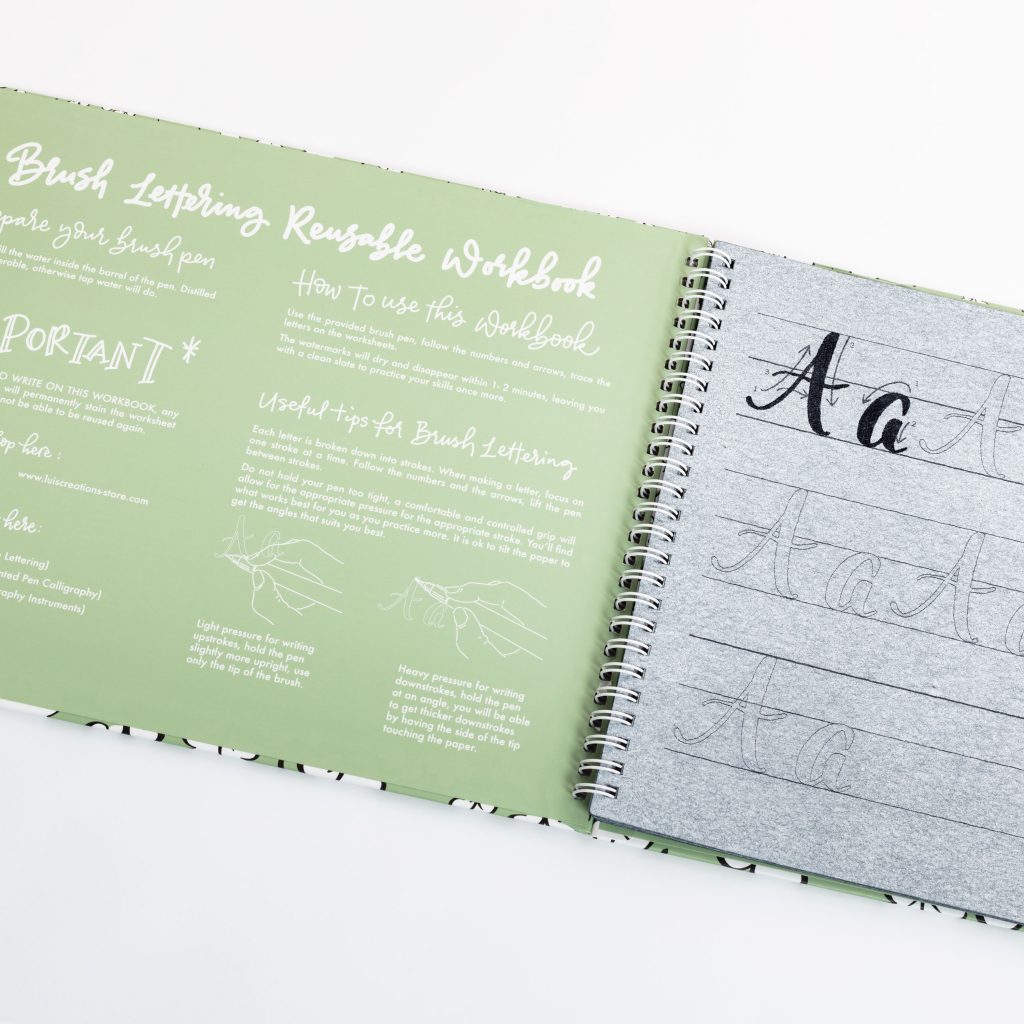 Brush Lettering Reusable Workbook
your brush pen
the water inside the barrel of the pen. Distilled
otherwise tap water will do.
*
WRITE ON THIS WORKBOOK, any
will permanently stain the worksheet
not be able to be reused again.
here :
www.luiscreations-store.com
here:
Lettering)
Pen Calligraphy)
Instruments)
How To use this Workbook
Use the provided brush pen, follow the numbers and arrows, trace the
letters on the worksheets.
The watermarks will dry and disappear within 1- 2 minutes, leaving you
with a clean slate to practice your skills once more.
Useful tips for Brush Lettering
Each letter is broken down into strokes. When making a letter, focus on
one stroke at a time. Follow the numbers and the arrows, lift the pen
between strokes.
Do not hold your pen too tight, a comfortable and controlled grip will
allow for the appropriate pressure for the appropriate stroke. You'll find
what works best for you as you practice more. It is ok to tilt the paper to
get the angles that suits you best.
Aa
Aa
Light pressure for writing
upstrokes, hold the pen
slightly more upright, use
only the tip of the brush.
Heavy pressure for writing
downstrokes, hold the pen
at an angle, you will be able
to get thicker downstrokes
by having the side of the tip
touching the paper.
A a A
A a A a
A a